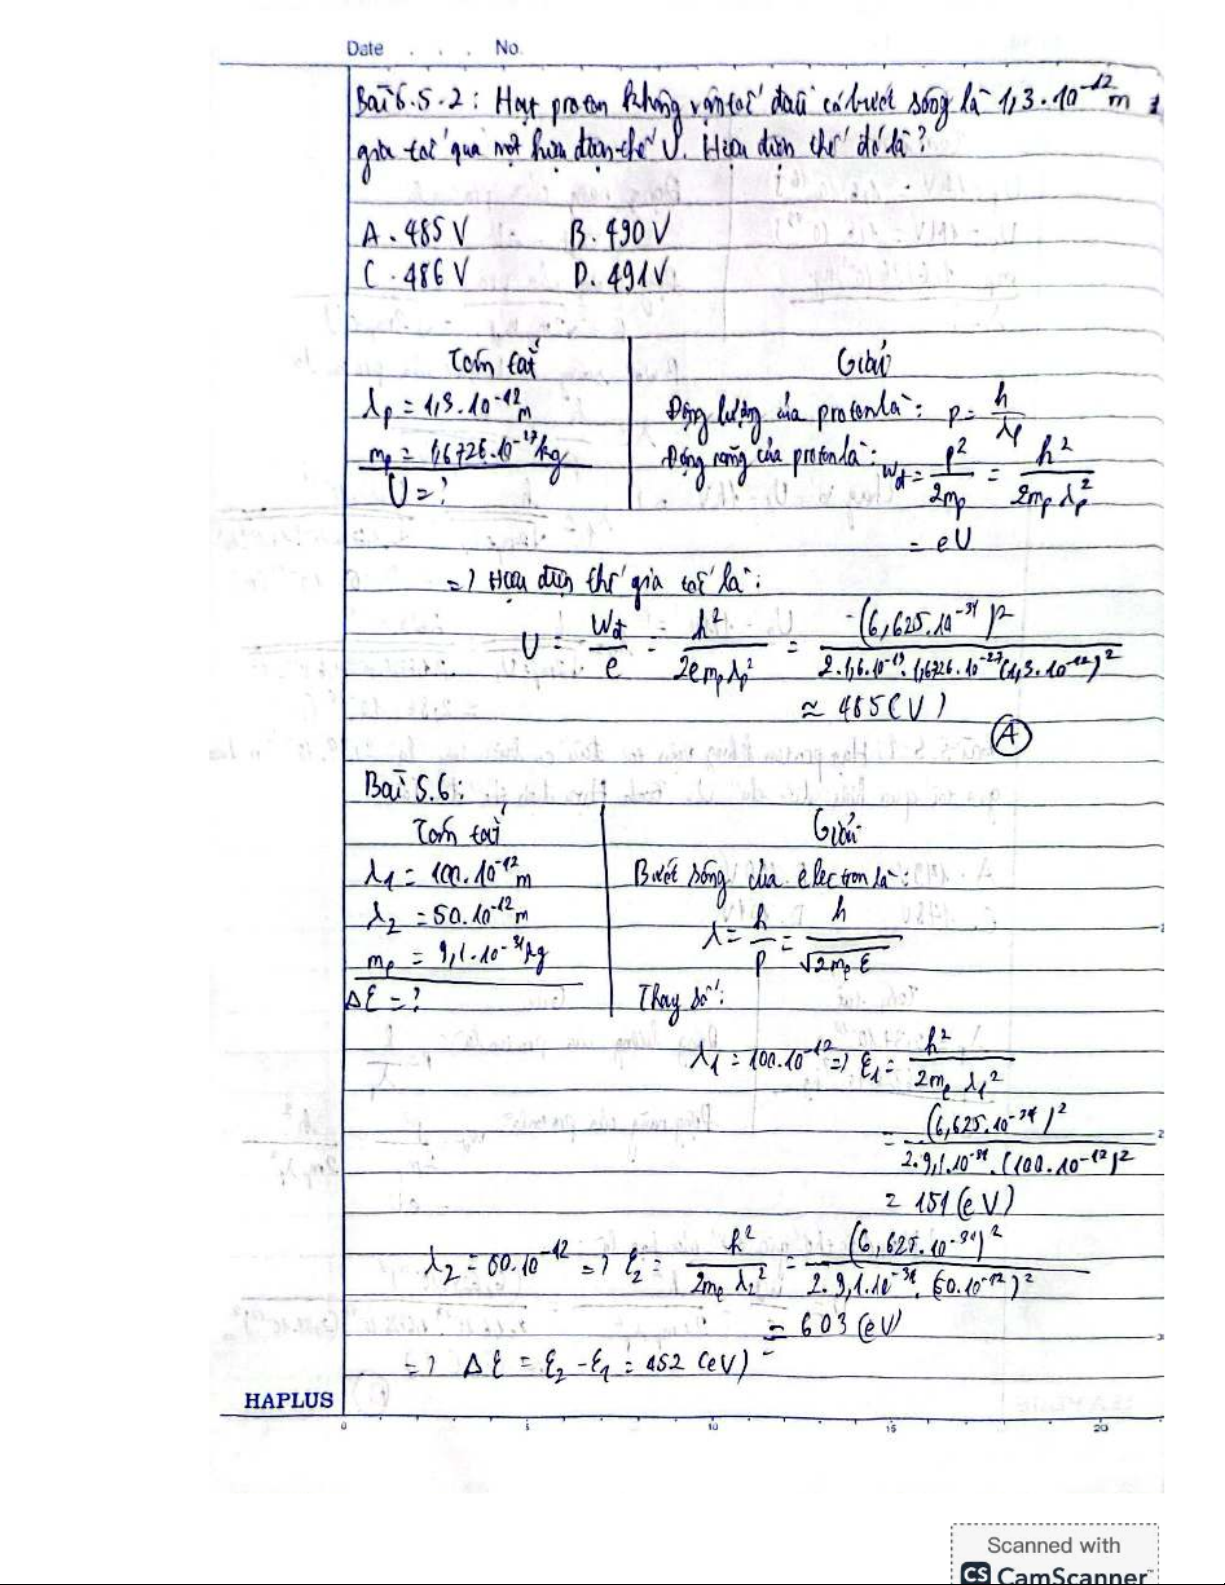 Date . . . No.
Bài 5.5.2: Hạt proton không vận tốc đầu có bước sóng là 1,3.10^-12 m
gia tốc qua một hiệu điện thế U. Hiệu điện thế đó là?
A. 485 V B. 490 V
C. 486 V D. 491 V
Tóm tắt Giải
λp = 1,3.10^-12 m Động lượng của proton là: p = h/λp
mp = 1,6726.10^-27 kg Động năng của proton là: Wđ = p²/2mp = h²/2mpλp²
U = ?
= eU
=> Hiệu điện thế gia tốc là:
U = Wđ/e = h²/2empλp² = (6,625.10^-34)²/2.1,6.10^-19.1,6726.10^-27(1,3.10^-12)²
≈ 485 (V)
A
Bài 5.6:
Tóm tắt Giải
λ1 = 100.10^-12 m Bước sóng của electron là:
λ2 = 50.10^-12 m λ = h/p = h/√2me E
me = 9,1.10^-31 kg
ΔE = ? Thay số:
λ1 = 100.10^-12 => E1 = h²/2me λ1²
= (6,625.10^-34)²/2.9,1.10^-31.(100.10^-12)²
= 151 (eV)
λ2 = 50.10^-12 => E2 = h²/2me λ2² = (6,625.10^-34)²/2.9,1.10^-31.(50.10^-12)²
= 603 (eV)
=> ΔE = E2 - E1 = 452 (eV)
HAPLUS
0 5 10 15 20
Scanned with
CS CamScanner